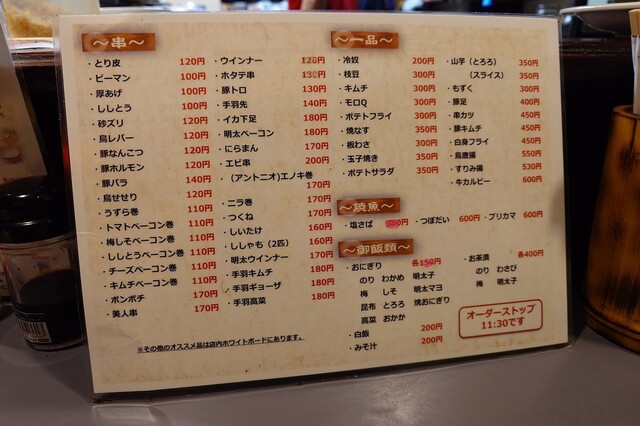 ～串～
・とり皮 120円
・ピーマン 100円
・厚あげ 100円
・ししとう 100円
・砂ズリ 120円
・鳥レバー 120円
・豚なんこつ 120円
・豚ホルモン 120円
・豚バラ 140円
・鳥せせり 120円
・うずら巻 110円
・トマトベーコン巻 110円
・梅しそベーコン巻 110円
・ししとうベーコン巻 110円
・チーズベーコン巻 110円
・キムチベーコン巻 110円
・ボンボチ 170円
・美人串 170円
・ウインナー 120円
・ホタテ串 130円
・豚トロ 130円
・手羽先 140円
・イカ下足 180円
・明太ベーコン 180円
・にらまん 170円
・エビ串 200円
・（アントニオ）エノキ巻 170円
・ニラ巻 170円
・つくね 170円
・しいたけ 160円
・ししゃも（2匹） 160円
・明太ウインナー 170円
・手羽キムチ 180円
・手羽ギョーザ 180円
・手羽高菜 180円
※その他のオススメ品は店内ホワイトボードにあります。
～一品～
・冷奴 200円
・枝豆 300円
・キムチ 300円
・モロQ 300円
・ポテトフライ 300円
・焼なす 350円
・板わさ 300円
・玉子焼き 350円
・ポテトサラダ 350円
・山芋（とろろ） 350円
（スライス） 350円
・もずく 300円
・豚足 400円
・串カツ 450円
・豚キムチ 450円
・白身フライ 450円
・鳥唐揚 550円
・すりみ揚 530円
・牛カルビー 600円
～焼魚～
・塩さば
・つぼだい 600円
・ブリカマ 600円
～御飯類～
・おにぎり 各150円
のり わかめ 明太子
梅 しそ 明太マヨ
昆布 とろろ 焼おにぎり
高菜 おかか
・白飯 200円
・みそ汁 200円
・お茶漬 各400円
のり わさび
梅 明太子
オーダーストップ
11:30です